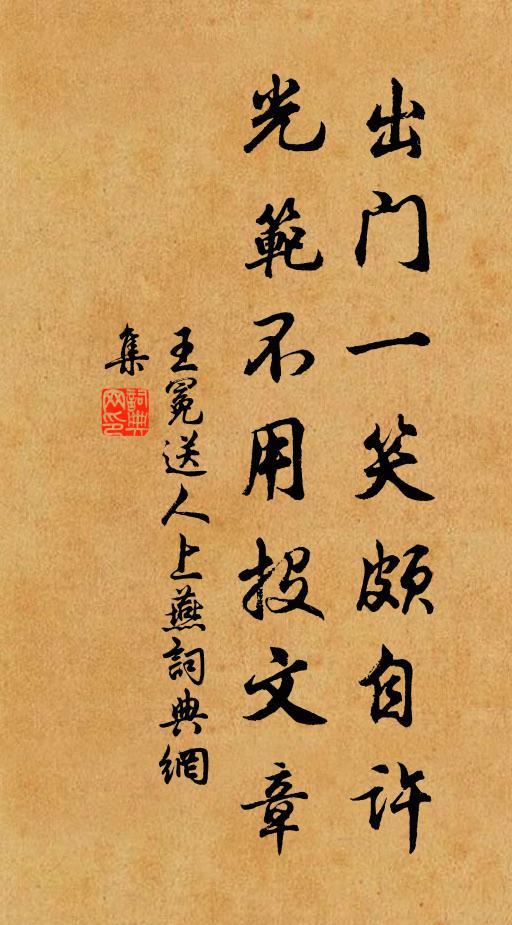 出门一笑頗自许
光範不用投文章
王冕送人上燕詞典網
集
詞典
网印